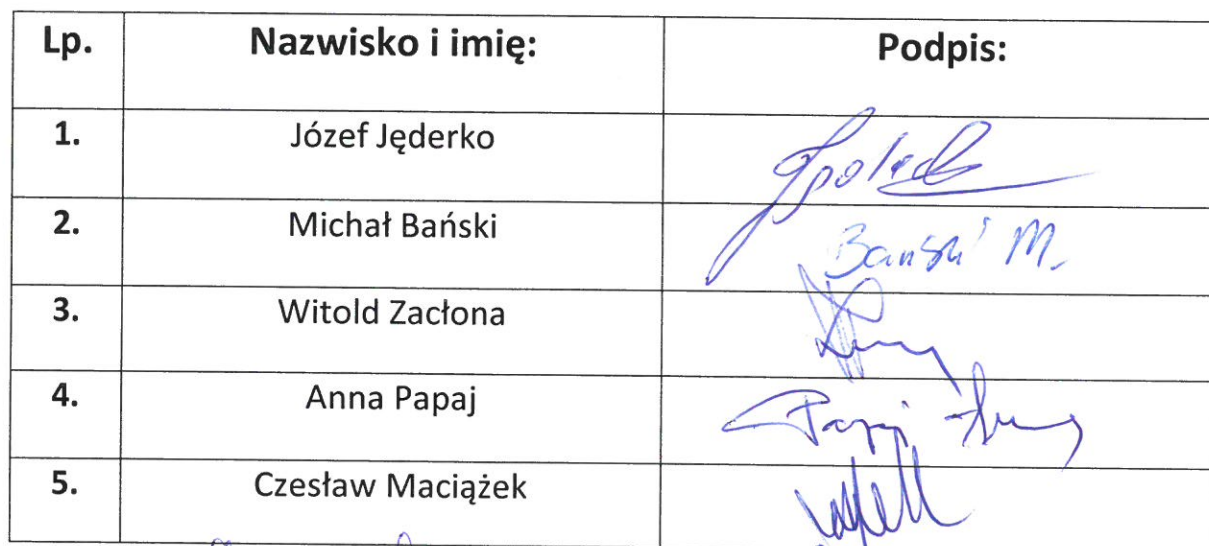 Lp. Nazwisko i imię: Podpis:
1. Józef Jęderko
2. Michał Bański Bański M.
3. Witold Zacłona
4. Anna Papaj Papaj
5. Czesław Maciążek